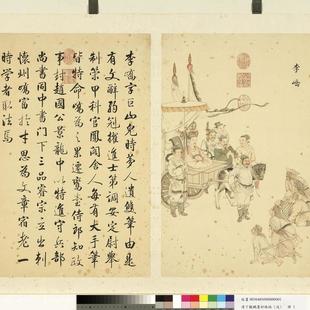 李嶠
李嶠字巨山兒時夢人遺雙筆由是
有文辭弱冠擢進士第調安定尉舉
制策甲科官鳳閣舍人每有大手筆
皆特命嶠為之累遷鸞臺侍郎知政
事封趙國公景龍中以特進守兵部
尚書同中書門下三品睿宗立出刺
懷州嶠富於才思為文章宿老一
時學者取法焉